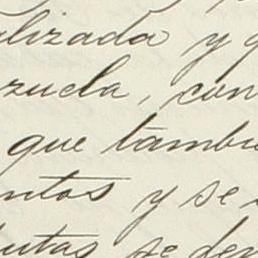 alizada y q
zuela, con
que tambi
ntos y se
utas se der